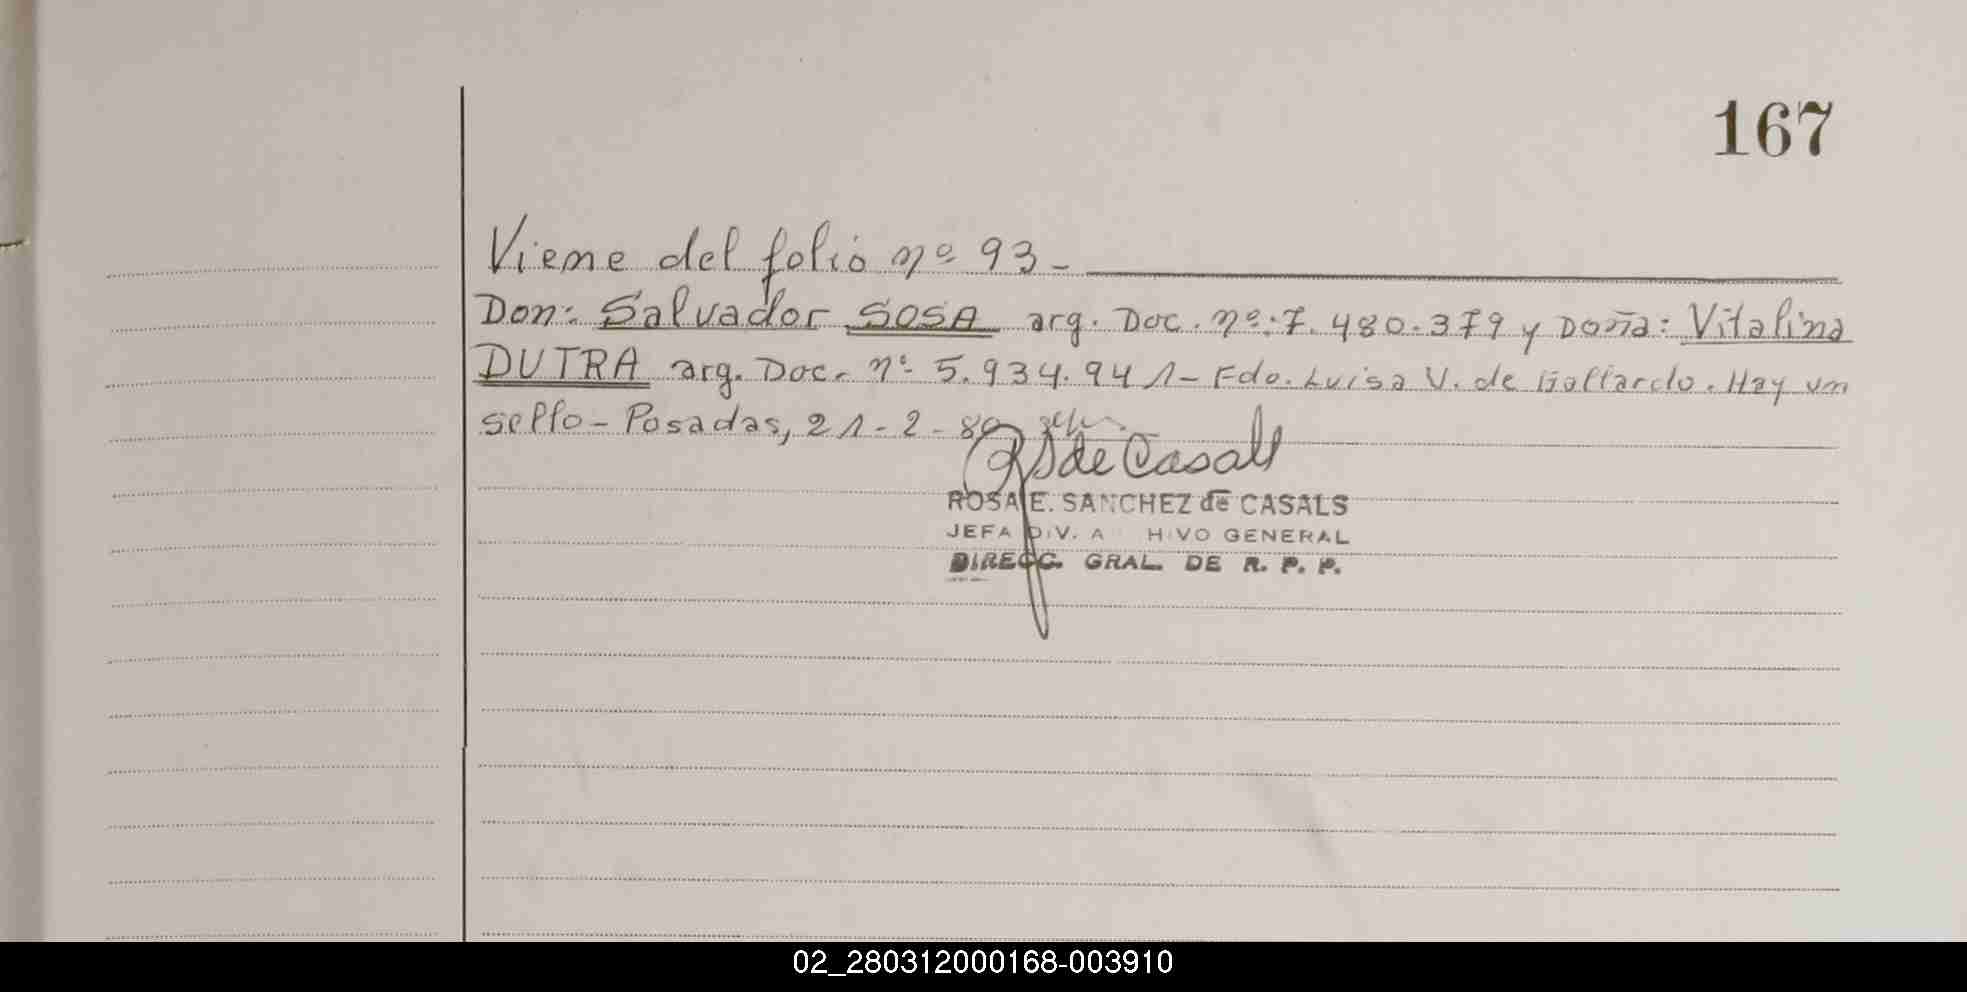 167
Viene del folio nº 93-
Don: Salvador SOSA arg. Doc. nº: 7.480.379 y Doña: Vitalina
DUTRA arg. Doc. nº 5.934.941- Fdo. Luisa V. de Gallardo. Hay un
sello- Posadas, 21-2-80
RS de Casals
ROSA E. SANCHEZ de CASALS
JEFA DIV. A HIVO GENERAL
DIRECC. GRAL. DE R. P. P.
02_280312000168-003910